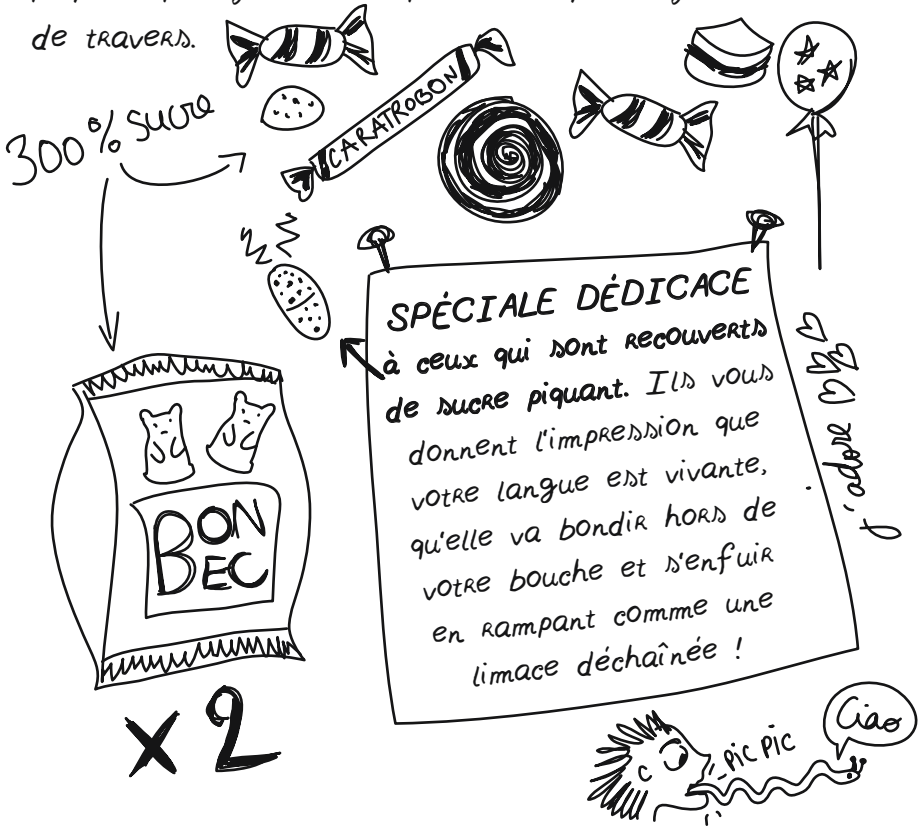 de travers.
300% sucre
CARATROBON
SPÉCIALE DÉDICACE
à ceux qui sont recouverts
de sucre piquant. Ils vous
donnent l'impression que
votre langue est vivante,
qu'elle va bondir hors de
votre bouche et s'enfuir
en rampant comme une
limace déchaînée !
j'adore
BON
BEC
x2
PIC PIC
Ciao